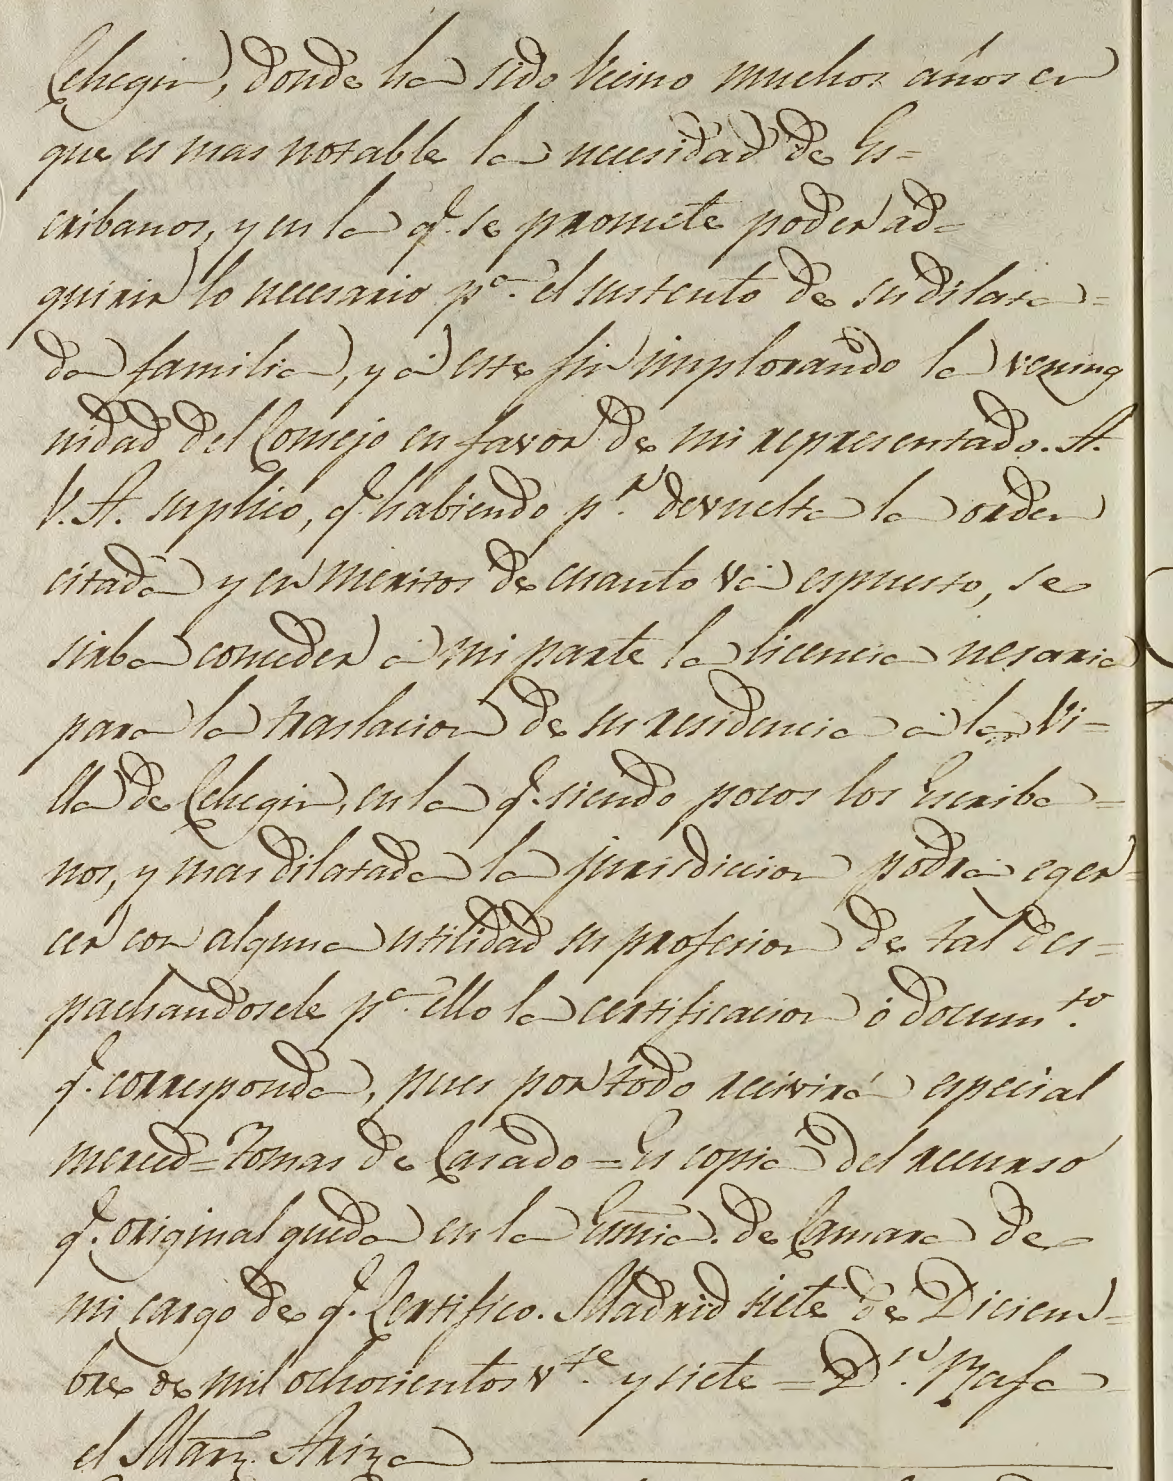 Cehegin, donde ha sido Vecino muchos años en
que es mas notable la necesidad de Es=
cribanos, y en la q.e se promete poder ad=
quirir lo necesario p.a el sustento de su dilata=
da familia, y á este fin implorando la vening
nidad del Consejo en favor de mi representado. A.
V. A. suplico, q.e habiendo p.r devuelta la orden
citada y en meritos de cuanto vá espuesto, se
sirba conceder á mi parte la licencia nesaria
para la traslacion de su residencia á la Vi=
lla de Cehegin, en la q.e siendo pocos los Escriba=
nos, y mas dilatada la jurisdiccion podrá eger=
cer con alguna utilidad su profesion de tal des=
pachandosele p.a ello la certificacion ó docum.to
q.e corresponda, pues por todo recivirá especial
merced= Tomas de Casado= Es copia del recurso
q.e original queda en la Esmia. de Camara de
mi cargo de q.e Certifico. Madrid siete de Diciem=
bre de mil ochocientos v.te y siete= D.n Rafa
el Marz. Ariza